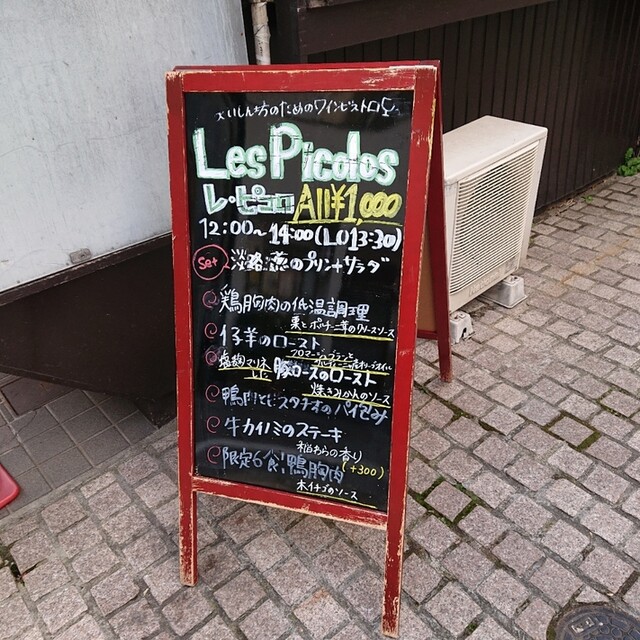 くいしん坊のためのワインビストロ
Les Picolos
レ・ピコロ All¥1,000
12:00~14:00(LO13:30)
set 淡路 のプリン+サラダ
鶏胸肉の低温調理
栗とポルチーニ茸のクリームソース
仔羊のロースト
フロマージュブランと
オリーブオイル
塩麹マリネ
した 豚ロースのロースト
焼きみかんのソース
鴨肉とピスタチオのパイ包み
牛カイノミのステーキ
稲わらの香り
限定6食!鴨胸肉 (+300)
木イチゴのソース